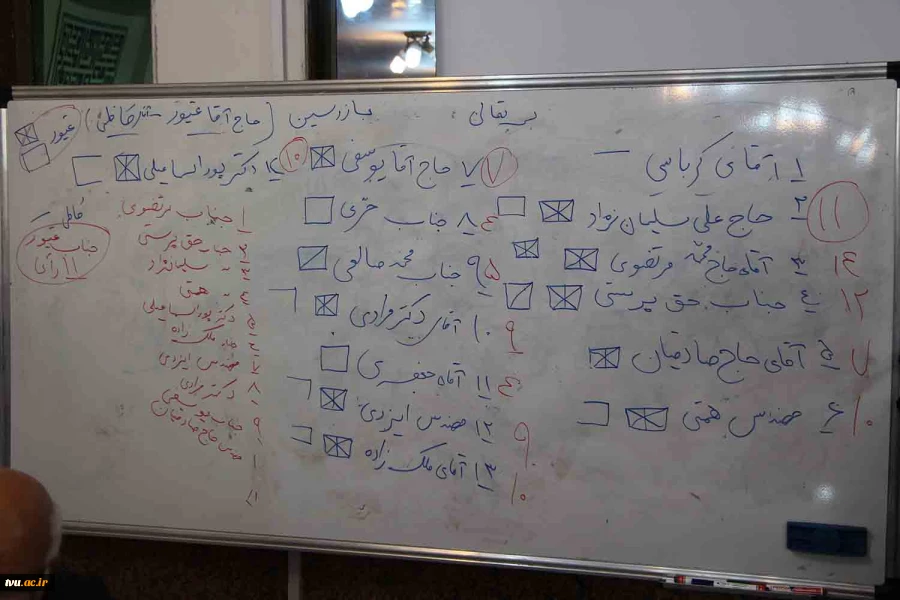 بازرسین (حاج آقا غیور -
غیور
۱ آقای کرباسی —
۲ حاج علی سلیمان نژاد ۱۱
۳ آقای حاج محمد مرتضوی ۱۴
۴ جناب حق پرستی ۱۲
۵ آقای حاج صادقیان ۷
۶ مهندس همتی ۱۰
۷ حاج آقا یوسفی ۷
۸ جناب حرّی ۴
۹ جناب محمد صالحی ۵
۱۰ آقای دکتر مرادی ۹
۱۱ آقای جعفری ۴
۱۲ مهندس ایزدی ۹
۱۳ آقای ملک زاده ۱۰
۱۴ دکتر پور اسماعیلی ۱۰
۱ جناب مرتضوی
۲ جناب حق پرستی
۳ سلیمان نژاد
۴ همتی
۵ دکتر پور اسماعیلی
۶ ملک زاده
۷ مهندس ایزدی
۸ دکتر مرادی
۹ جناب یوسفی
حاج صادقیان
جناب غیور
۱۱ رأی
tvu.ac.ir